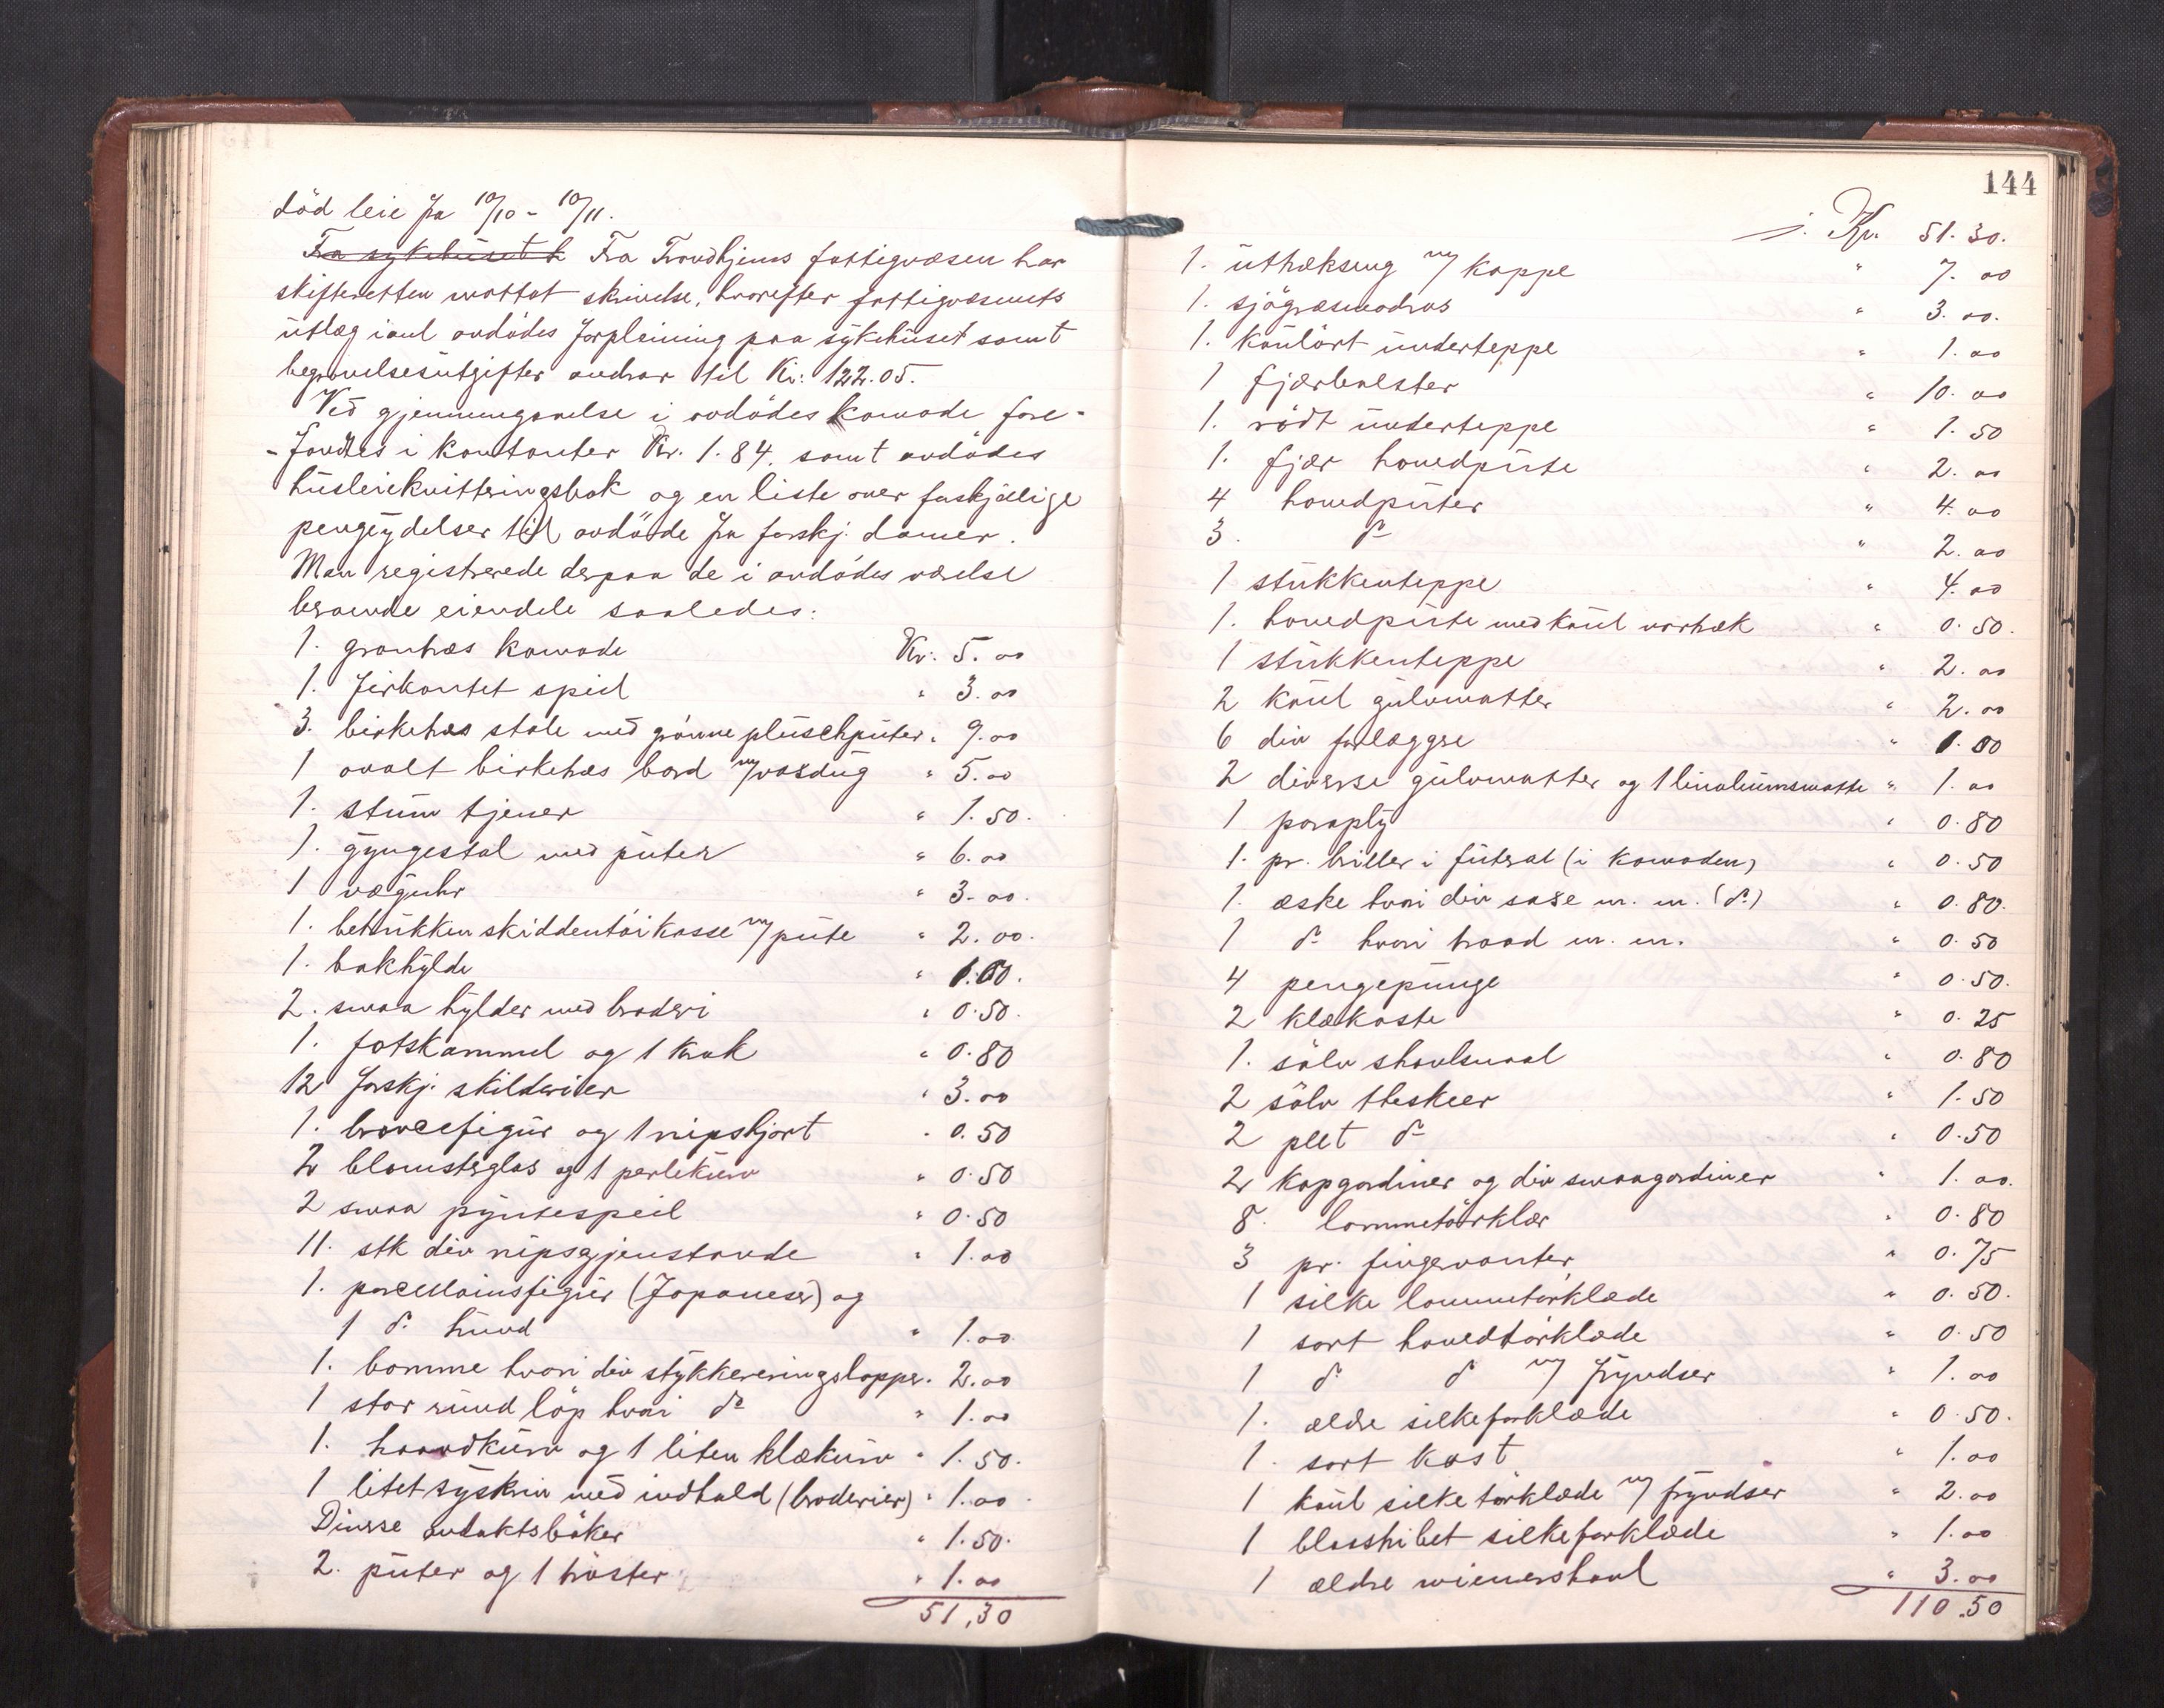 död leie fra 10/10 - 10/11.
Fra sykehuset h Fra Trondhjems fattigvæsen har
skifteretten mottat skrivelse, hvorefter fattigvæsenets
utlæg i anl avdödes forpleining paa sykehuset samt
begravelsesutgifter andrar til Kr: 122.05.
Ved gjennemgaaelse i avdödes komode fore-
-fandtes i kontanter Kr. 1.84. samt avdödes
husleiekvitteringsbok og en liste over forskjællige
pengeydelser til avdöde fra forskj. damer.
Man registrerede derpaa de i avdödes værelse
beroende eiendele saaledes:
1. grantræs komode Kr: 5.00
1. firkantet speil " 3.00
3. birketræs stole med grönne pluschputer " 9.00
1 ovalt birketræs bord m/voxdug " 5.00
1. stum tjener " 1.50.
1. gyngestol med puter " 6.00
1 væguhr " 3.00.
1. betrukken skiddentöikasse m/ pute " 2.00.
1. bokhylde " 1.00.
2. smaa hylder med broderi " 0.50.
1. fotskammel og 1 krak " 0.80
12 forskj. skilderier " 3.00
1. broncefigur og 1 nipshjort " 0.50
2 blomsterglas og 1 perlekurv " 0.50
2 smaa pyntespeil " 0.50
11. stk div nipsgjenstande " 1.00
1. porcellainsfigur (Japaneser) og
1 do hund " 1.00
1. bomme hvori div stykkereringslapper " 2.00
1 stor rund löp hvori do " 1.00
1. haandkurv og 1 liten klækurv " 1.50.
1 litet syskrin med indhold (broderier) " 1.00
Diverse andaktsböker " 1.50.
2. puter og 1 tröster " 1.00
51,30
144
Kr. 51.30.
1. uttræksseng m/ kappe " 7.00
1. sjögræsmadras " 3.00.
1. kaulört underteppe " 1.00
1 fjærbolster " 10.00
1. rödt underteppe " 1.50
1. fjær hovedpute " 2.00
4 hovedputer " 4.00
3. do " 2.00
1 strikketeppe " 4.00
1. hovedpute med kaul vartræk " 0.50.
1 strikketeppe " 2.00
2 kaul gulvmatter " 2.00
6 div forlæggre " 1.00
2 diverse gulvmatter og 1 linoliumsmatte " 1.00
1 paraply " 0.80
1. pr. briller i futeral (i komoden) " 0.50
1. æske hvori div saxe m. m. (do) " 0.80.
1 do hvori traad m. m. " 0.50
4 pengepunge " 0.50.
2 klækoste " 0.25
1. sölv shavlsnaal " 0.80
2 sölv theskeer " 1.50
2 plet do " 0.50
2 kapgardiner og div smaagardiner " 1.00.
8. lommetörklær " 0.80
3 pr. fingervanter " 0.75
1 silke lommetörklæde " 0.50.
1 sort hovedtörklæde " 0.50
1 do do m/ fryndser " 1.00
1. ældre silkeforklæde " 0.50.
1. sort kast " 1.00
1 kaul silke törklæde m/ fryndser " 2.00
1 blaastribet silkeforklæde " 1.00
1 ældre wienershavl " 3.00
110.50